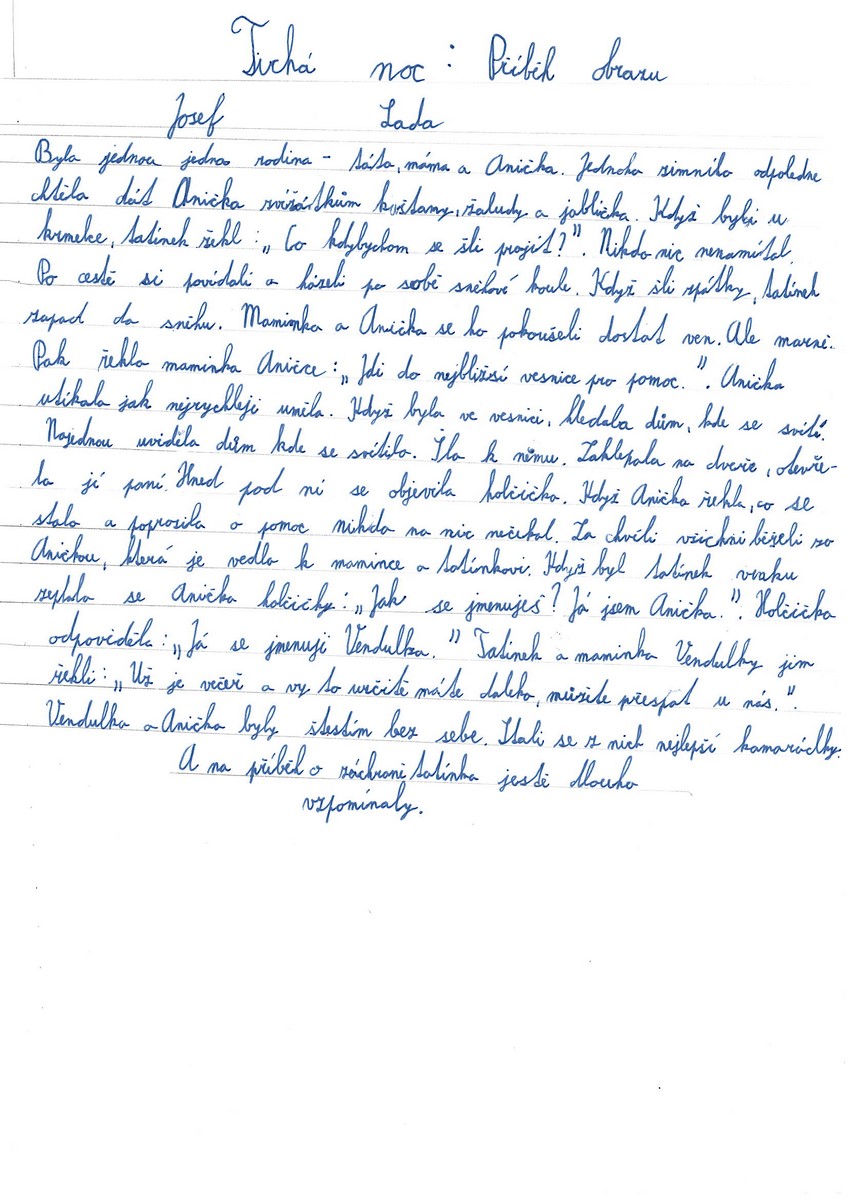 Tichá noc : Příběh obrazu
Josef Lada
Byla jednou jedna rodina - táta, máma a Anička. Jednoho zimního odpoledne
chtěla dát Anička zvířátkům kaštany, žaludy a jablíčka. Když byli u
krmelce, tatínek řekl : „ Co kdybychom se šli projít? ". Nikdo nic nenamítal.
Po cestě si povídali a házeli po sobě sněhové koule. Když šli zpátky, tatínek
zapad do sněhu. Maminka a Anička se ho pokoušeli dostat ven. Ale marně.
Pak řekla maminka Aničce : „ Jdi do nejbližší vesnice pro pomoc. ". Anička
utíkala jak nejrychleji uměla. Když byla ve vesnici, hledala dům, kde se svítí.
Najednou uviděla dům kde se svítilo. Šla k němu. Zaklepala na dveře, otevře-
la jí paní. Hned pod ní se objevila holčička. Když Anička řekla, co se
stalo a poprosila o pomoc nikdo na nic nečekal. Za chvíli všichni běželi za
Aničkou, která je vedla k mamince a tatínkovi. Když byl tatínek venku
zeptala se Anička holčičky : „ Jak se jmenuješ? Já jsem Anička. ". Holčička
odpověděla : „ Já se jmenuji Vendulka. " Tatínek a maminka Vendulky jim
řekli : „ Už je večer a vy to určitě máte daleko, můžete přespat u nás. ".
Vendulka a Anička byly štestím bez sebe. Stali se z nich nejlepší kamarádky.
A na příběh o záchraně tatínka jestě dlouho
vzpomínaly.